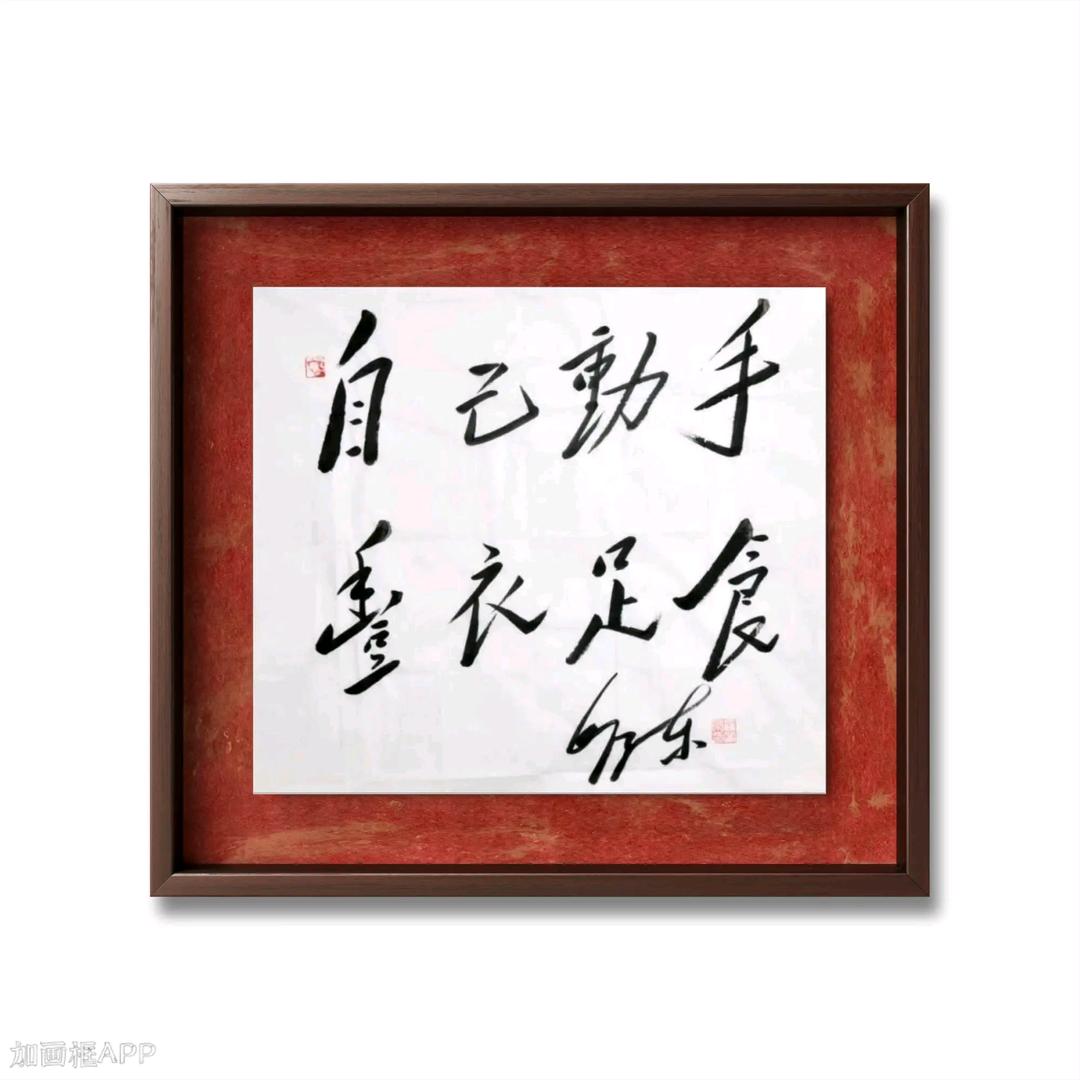 自己動手
豐衣足食
加画框APP